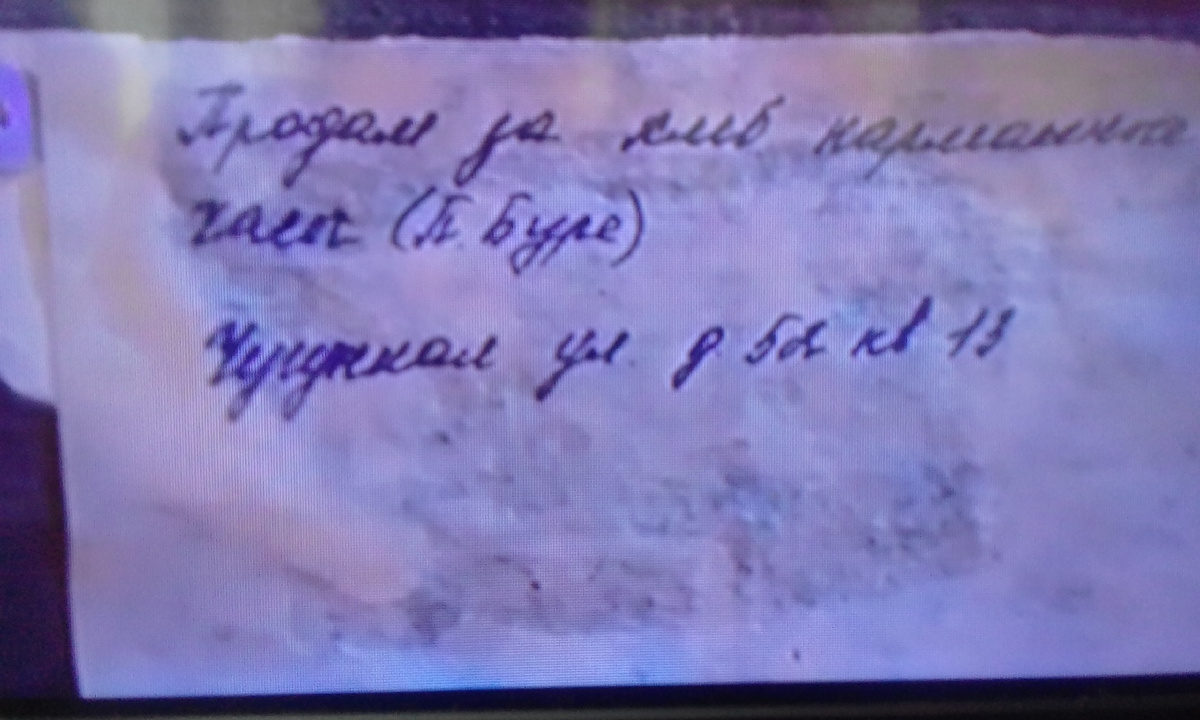 Продам за хлеб карманные
часы (П. Буре)
Чугунная ул. д 52 кв 13